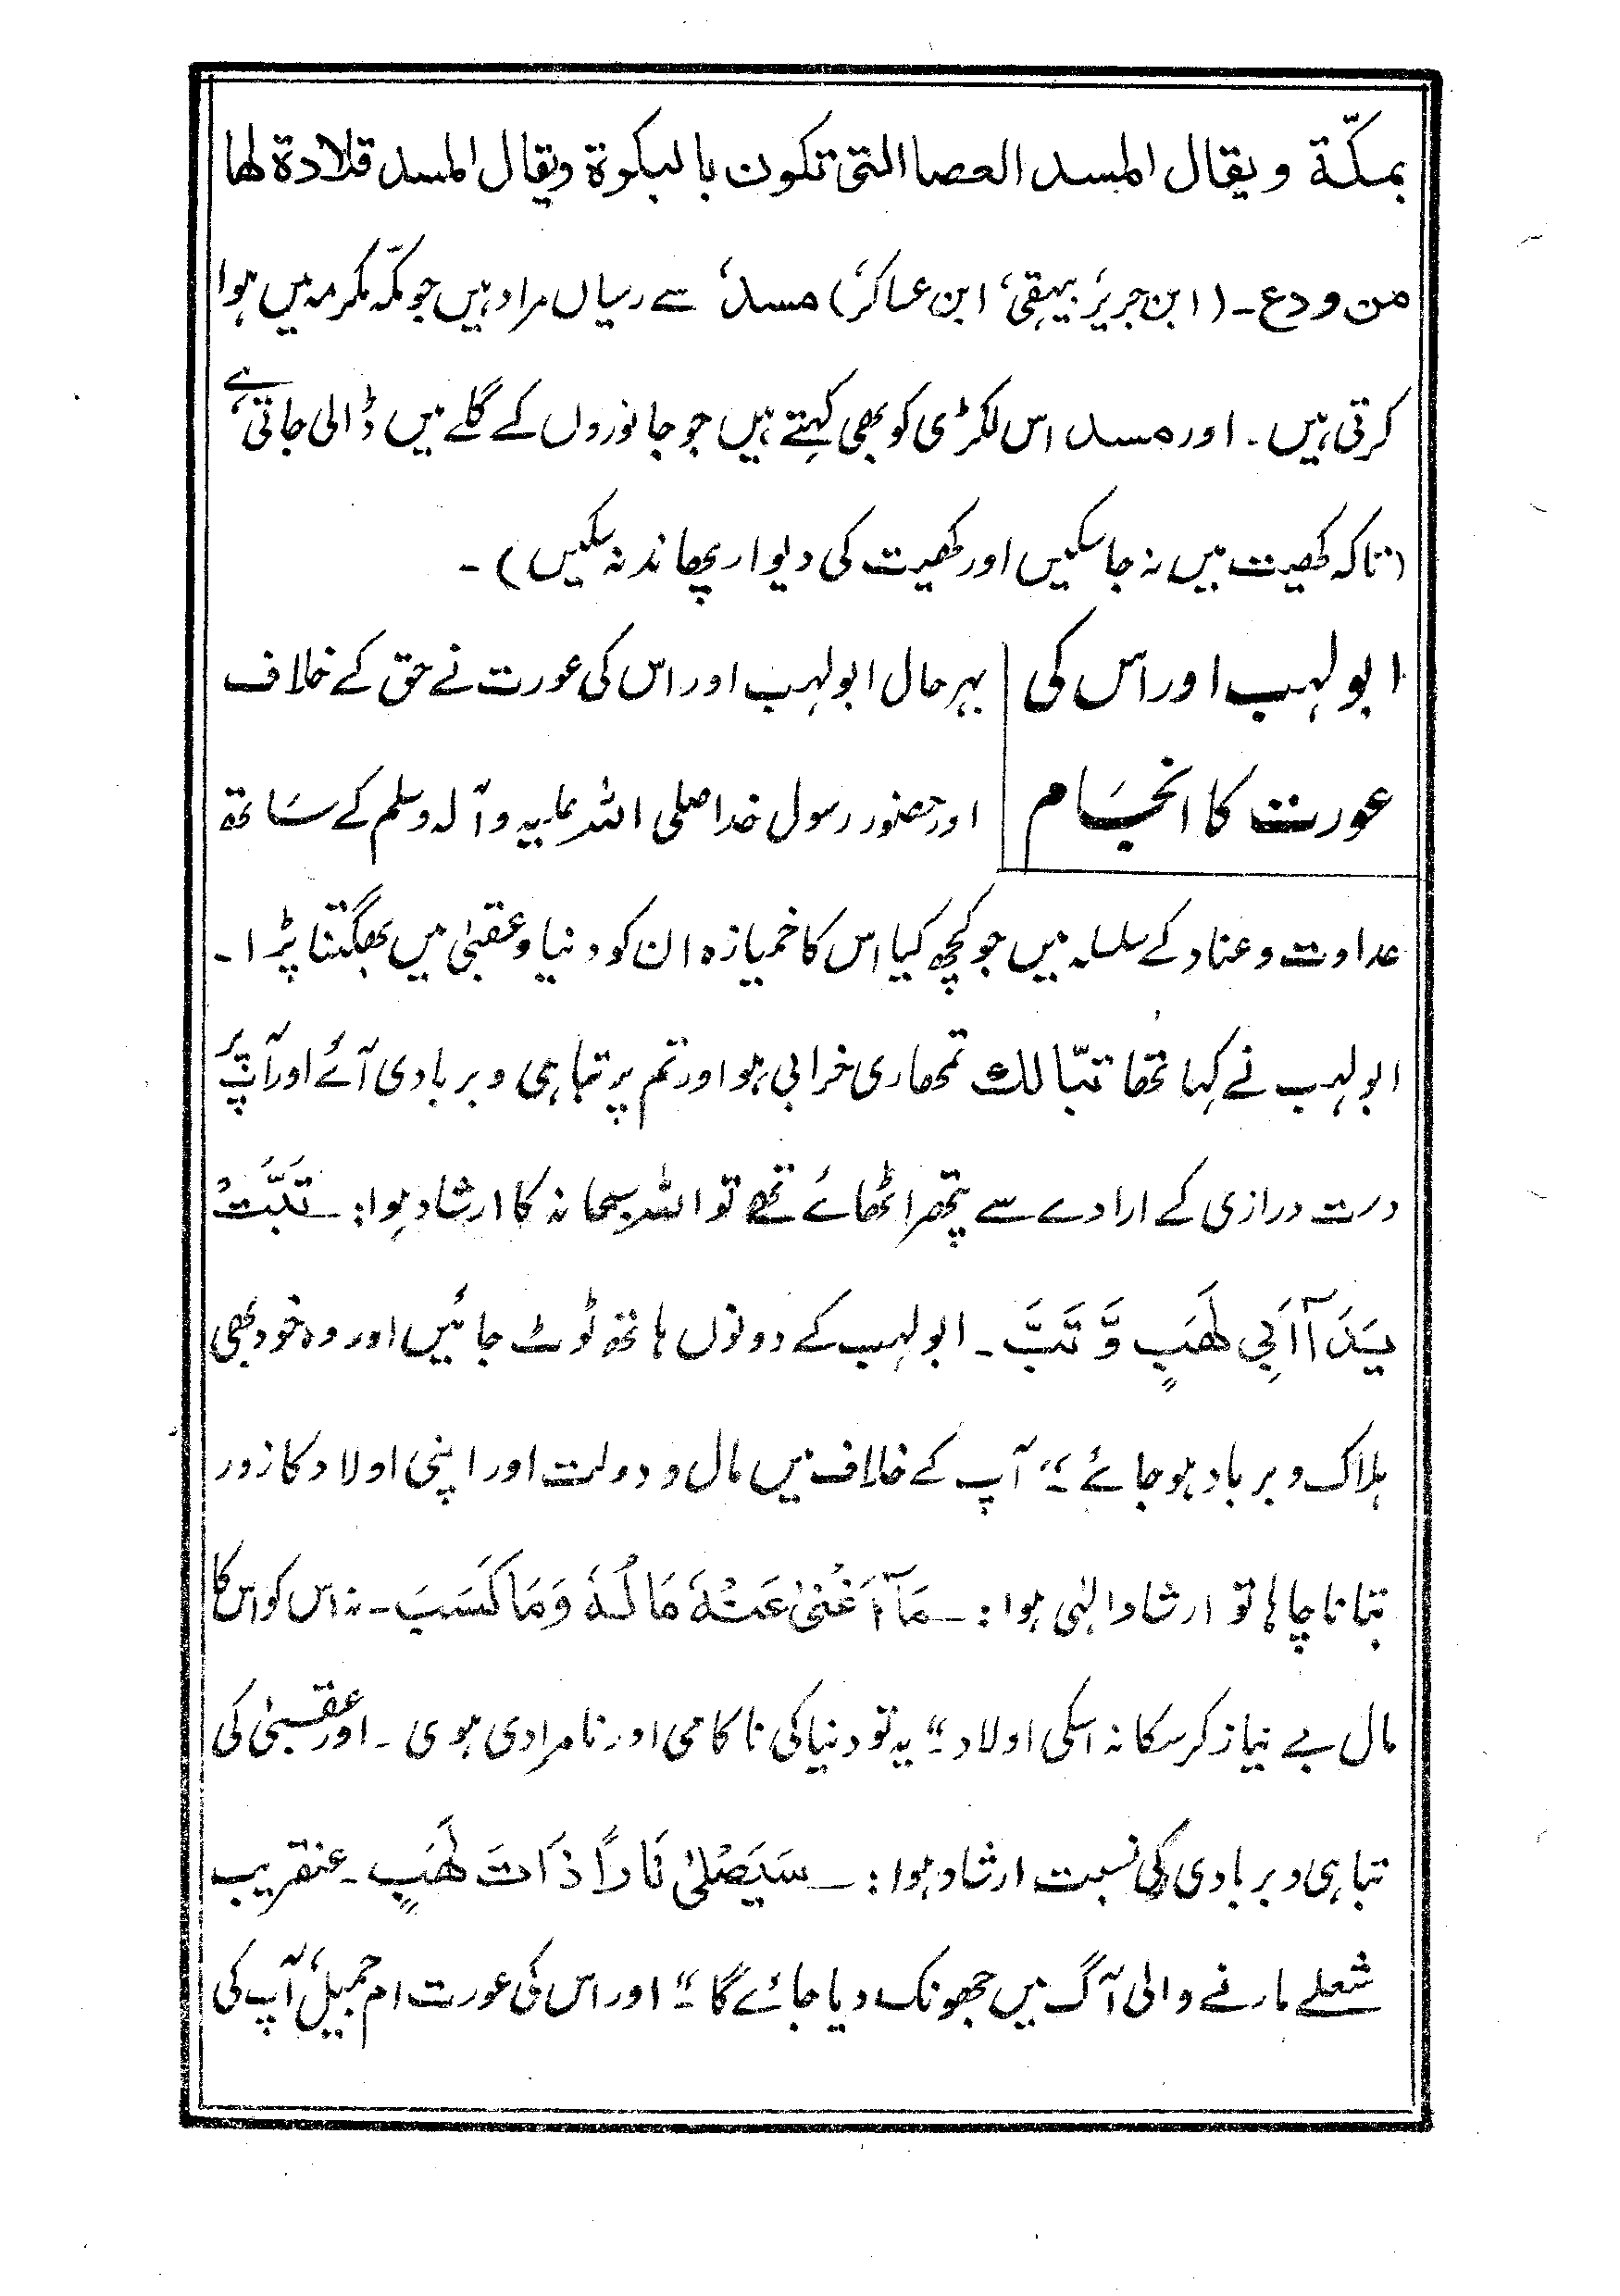 بمکّة ویقال المسد العصا التی تکون بالبکرة ویقال المسد قلادة لھا
من ودع۔ (ابن جریر، بیہقی، ابن عساکر) مسد، سے رسیاں مراد ہیں جو مکّہ مکرمہ میں ہوا
کرتی ہیں۔ اور مسد اس لکڑی کو بھی کہتے ہیں جو جانوروں کے گلے میں ڈالی جاتی ہے
(تاکہ کھیت میں نہ جا سکیں اور کھیت کی دیوار پھاند نہ سکیں)۔
ابولہب اور اس کی
عورت کا انجام
بہر حال ابولہب اور اس کی عورت نے حق کے خلاف
اور حضور رسول خدا صلی اللہ علیہ وآلہ وسلم کے ساتھ
عداوت و عناد کے سلسلہ میں جو کچھ کیا اس کا خمیازہ ان کو دنیا و عقبیٰ میں بھگتنا پڑا۔
ابولہب نے کہا تھا تبّا لک تمھاری خرابی ہو اور تم پر تباہی و بربادی آئے اور آپؐ پر
درست درازی کے ارادے سے پتھر اٹھائے تھے تو اللہ سبحانہ کا ارشاد ہوا:۔ تَبَّتْ
یَدَآ اَبِی لَھَبٍ وَّ تَبَّ۔ ابولہب کے دونوں ہاتھ ٹوٹ جائیں اور وہ خود بھی
ہلاک و برباد ہو جائے۔“ آپ کے خلاف میں مال و دولت اور اپنی اولاد کا زور
بتانا چاہا تو ارشاد الٰہی ہوا:۔ مَآ اَغْنیٰ عَنْہُ مَالُہٗ وَمَا کَسَبَ۔ نہ اس کو اس کا
مال بے نیاز کر سکا نہ اسکی اولاد۔“ یہ تو دنیا کی ناکامی اور نامرادی ہوی۔ اور عقبیٰ کی
تباہی و بربادی کی نسبت ارشاد ہوا:۔ سَیَصْلیٰ نَاراً ذَاتَ لَھَبٍ۔ عنقریب
شعلے مارنے والی آگ میں جھونک دیا جائے گا۔“ اور اس کی عورت ام جمیل، آپ کی